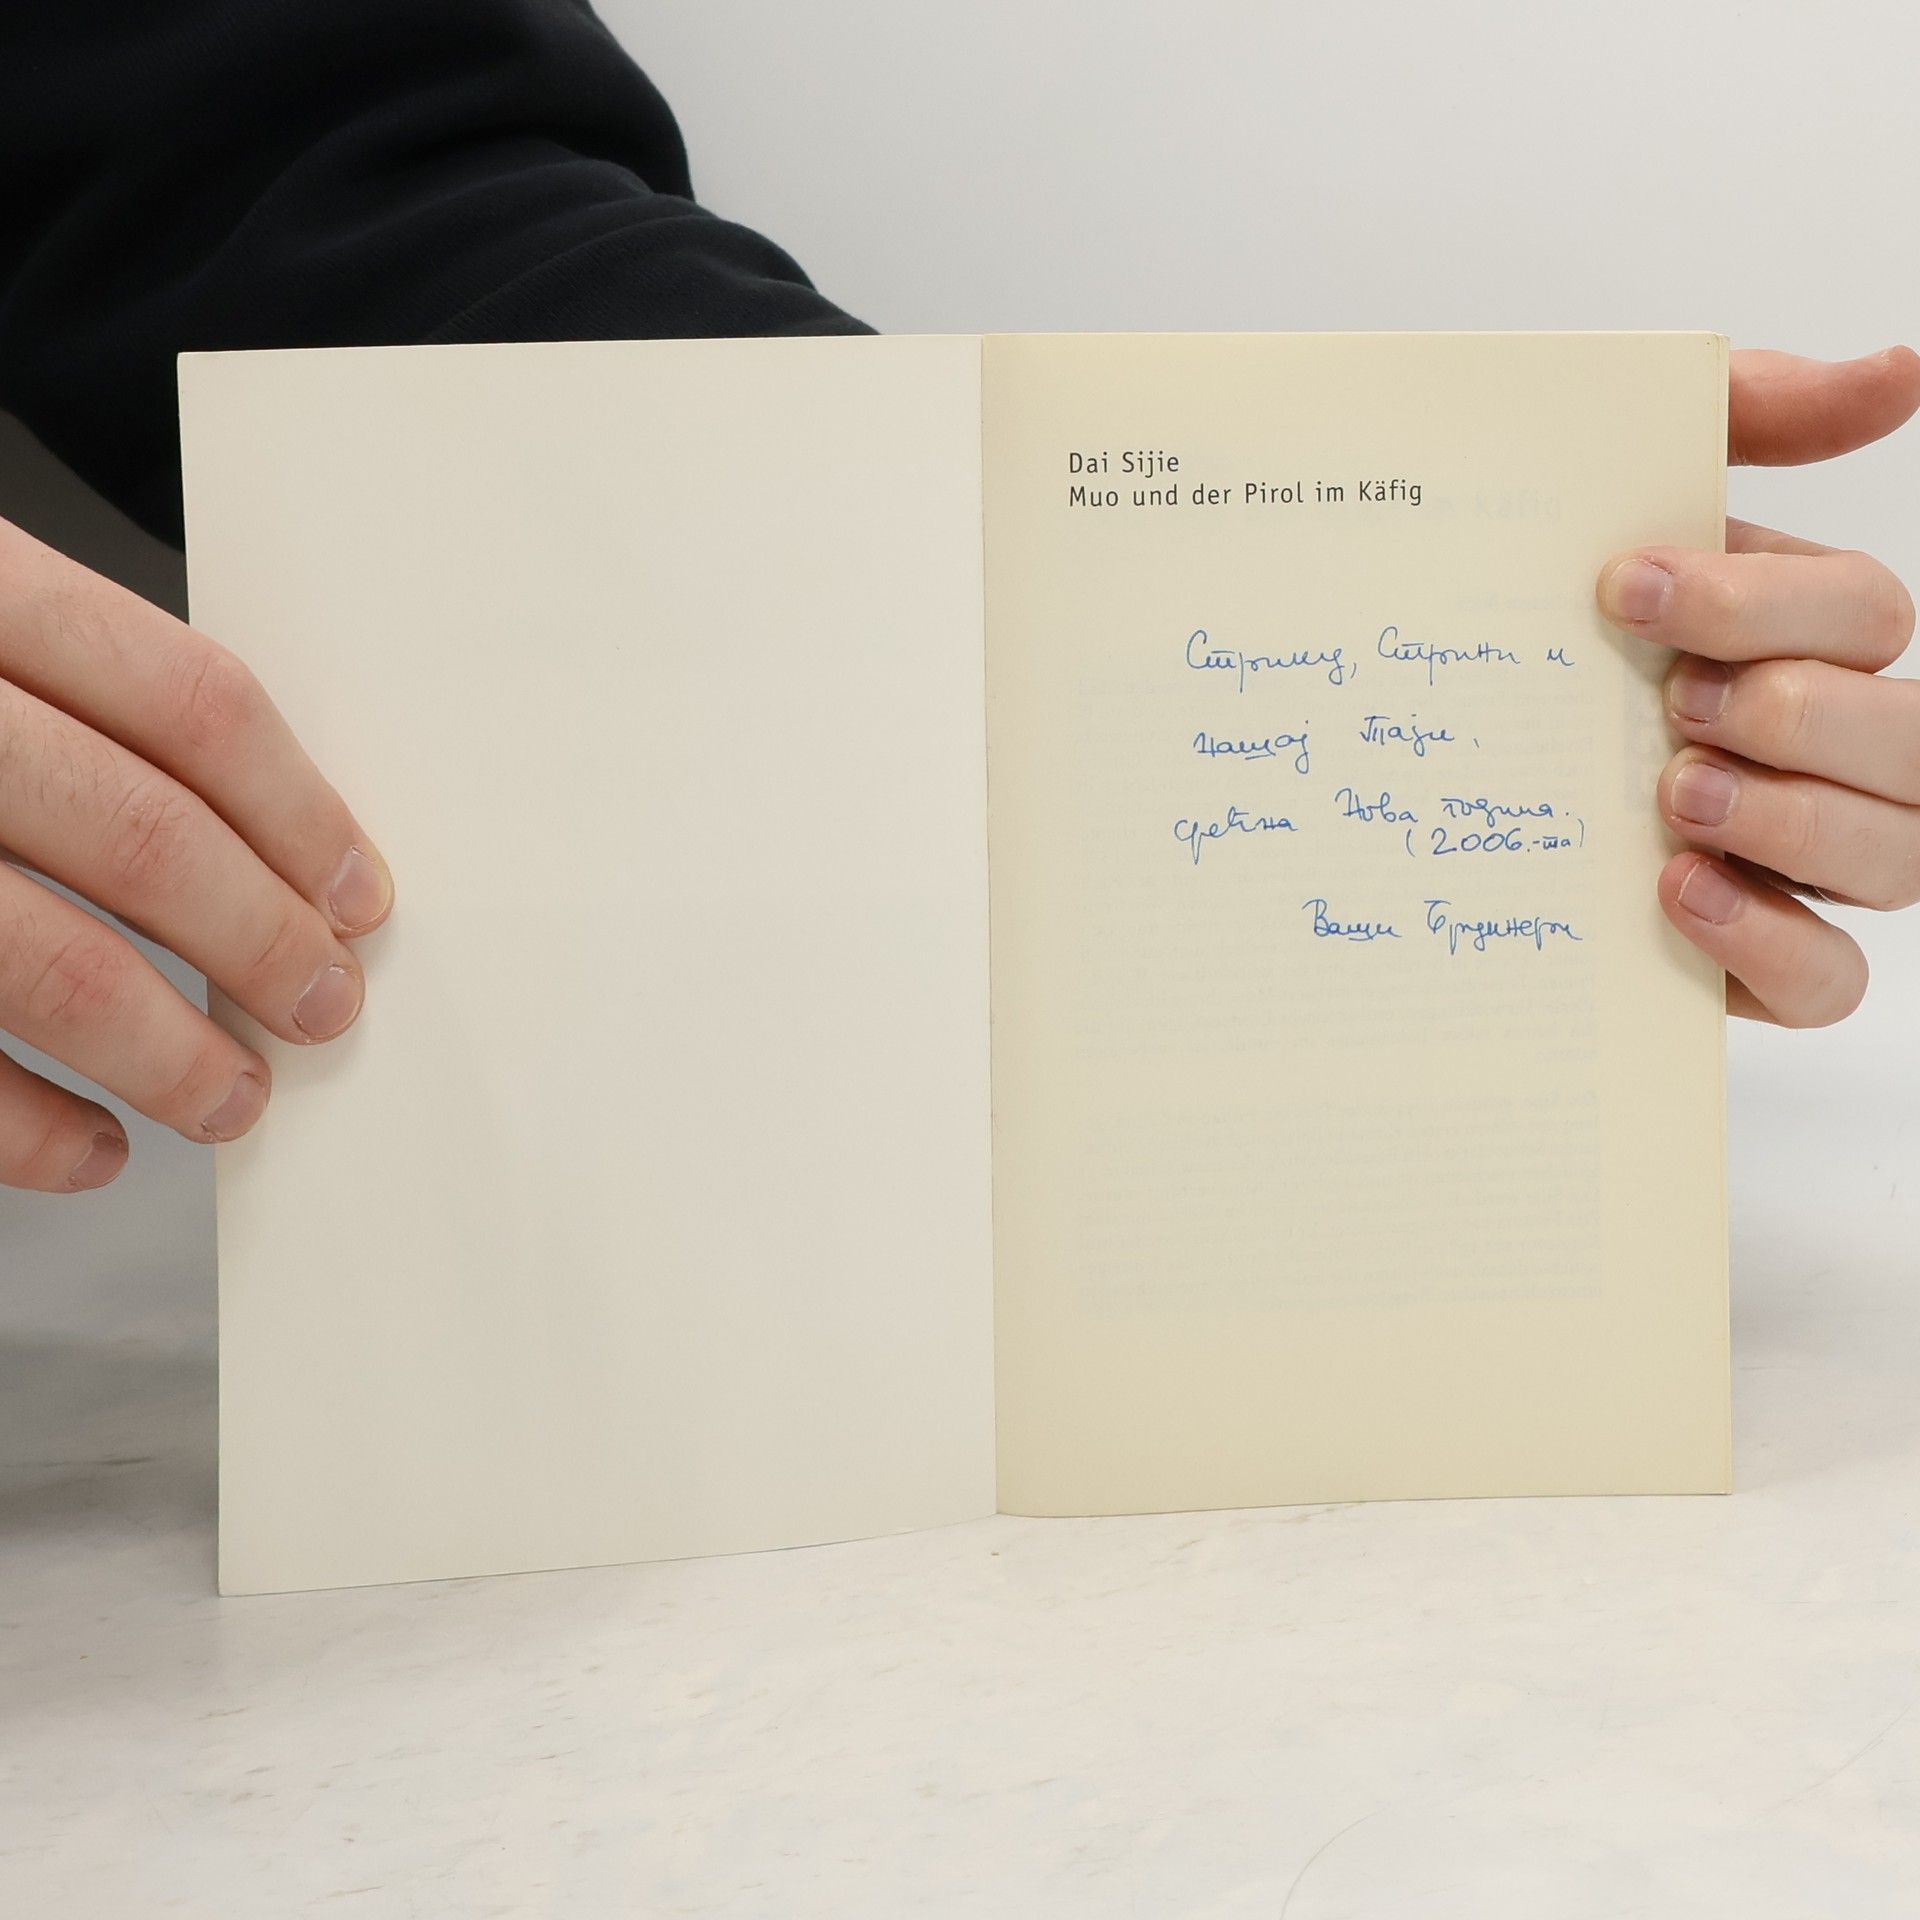 Dai Sijie
Muo und der Pirol im Käfig
Стрицу, Стрини и
нашој Таји,
срећна Нова година.
(2006.-та)
Ваши